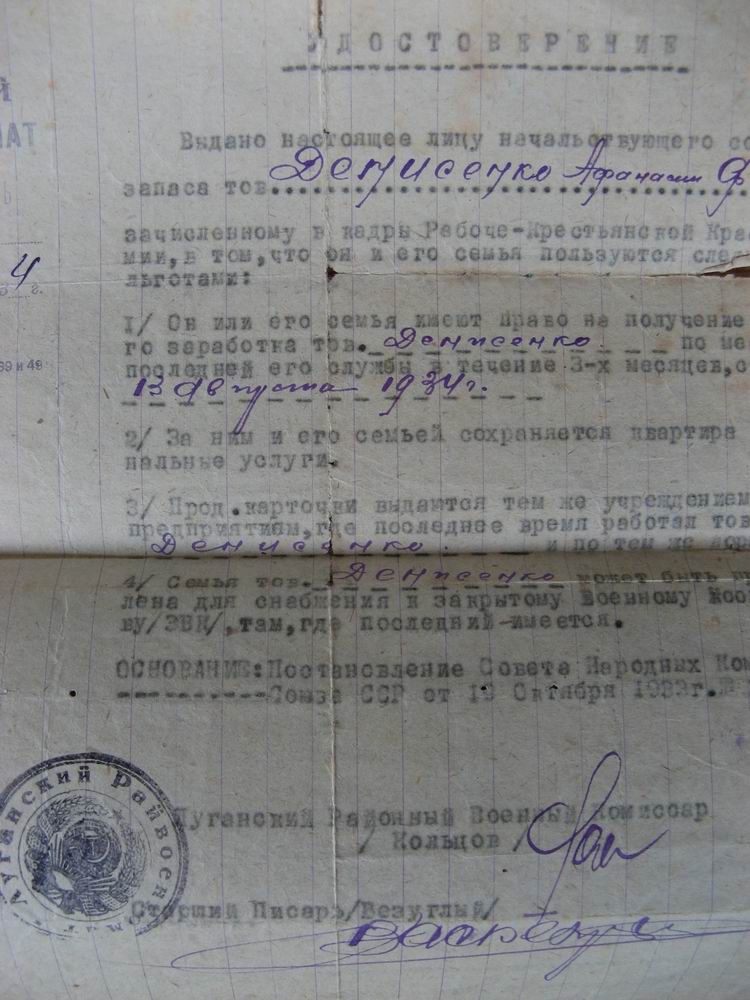 УДОСТОВЕРЕНИЕ
Й
ИАТ
Ь
4 г.
39 и 49
Выдано настоящее лицу начальствующего со
запаса тов. Денисенко Афанасии Ф
зачисленному в кадры Рабоче-Крестьянской Кра
мии, в том, что он и его семья пользуются сле
льготами:
1/ Он или его семья имеют право на получение
го заработка тов. Денисенко по ме
последней его службы в течение 3-х месяцев, с
13 августа 1934 г.
2/ За ним и его семьей сохраняется квартира
нальные услуги.
3/ Прод. карточки выдаются тем же учреждением
предприятием, где последнее время работал тов
Денисенко. и по тем же
4/ Семья тов. Денисенко может быть
лена для снабжения к закрытому военному коо
ву/ЗВК/, там, где последний имеется.
ОСНОВАНИЕ: Постановление Совета Народных Ком
Союза ССР от 19 Октября 1933г. №
Луганский Районный Военный Комиссар
/ Кольцов /
Старший Писарь/Безуглый/
Луганский Райвоенкомат